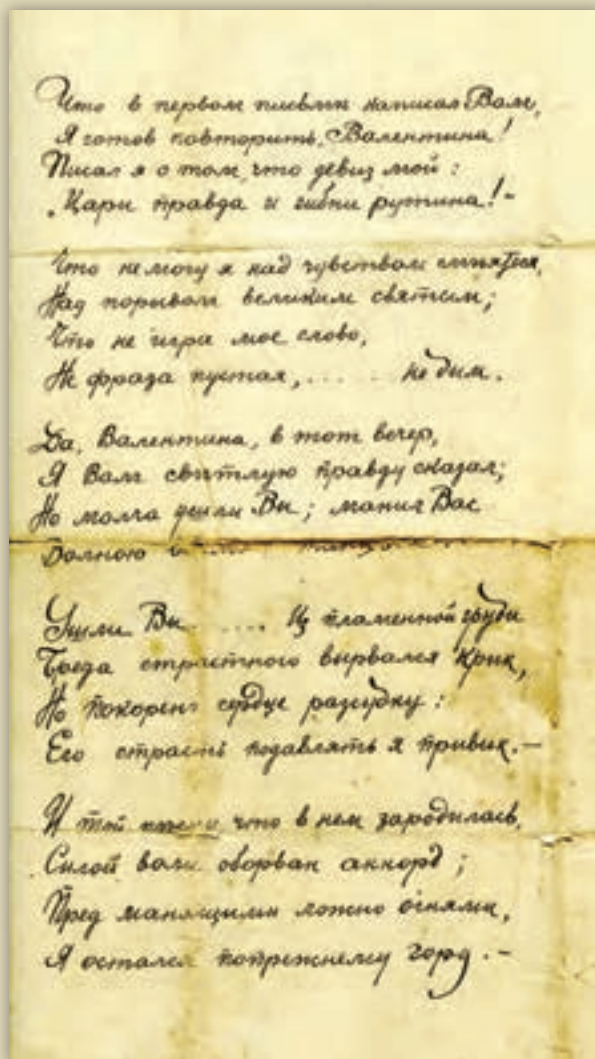 Что в первом письме написал Вам,
Я готов повторить, Валентина!
Писал я о том, что девиз мой:
„Цари правда и гибни рутина!–
Что не могу я над чувством смеяться,
Над порывом великим святым;
Что не игра мое слово,
Не фраза пустая,.... не дым.
Да, Валентина, в тот вечер,
Я Вам светлую правду сказал;
Но молча ушли Вы; манил Вас
Волною
Ушли Вы .... Из пламенной груди
Тогда страстного вырвался крик,
Но покорено сердце рассудку:
Его страсть подавлять я привык.–
И той что в нем зародилась,
Силой воли оборван аккорд;
Пред манящими ложно огнями,
Я остался попрежнему горд.–